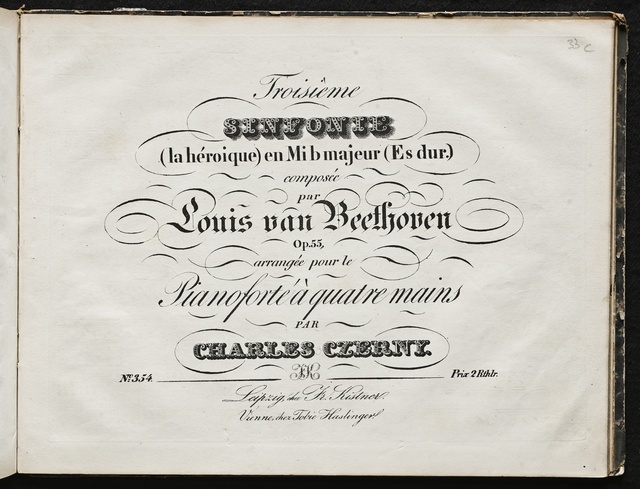 33 c
Troisième
SINFONIE
(la héroique) en Mi b majeur (Es dur.)
composée
par
Louis van Beethoven
Op.55,
arrangée pour le
Pianoforte à quatre mains
PAR
CHARLES CZERNY.
FK
No. 354. Prix 2 Rthlr.
Leipzig, chez Fr. Kistner.
Vienne, chez Tobie Haslinger.